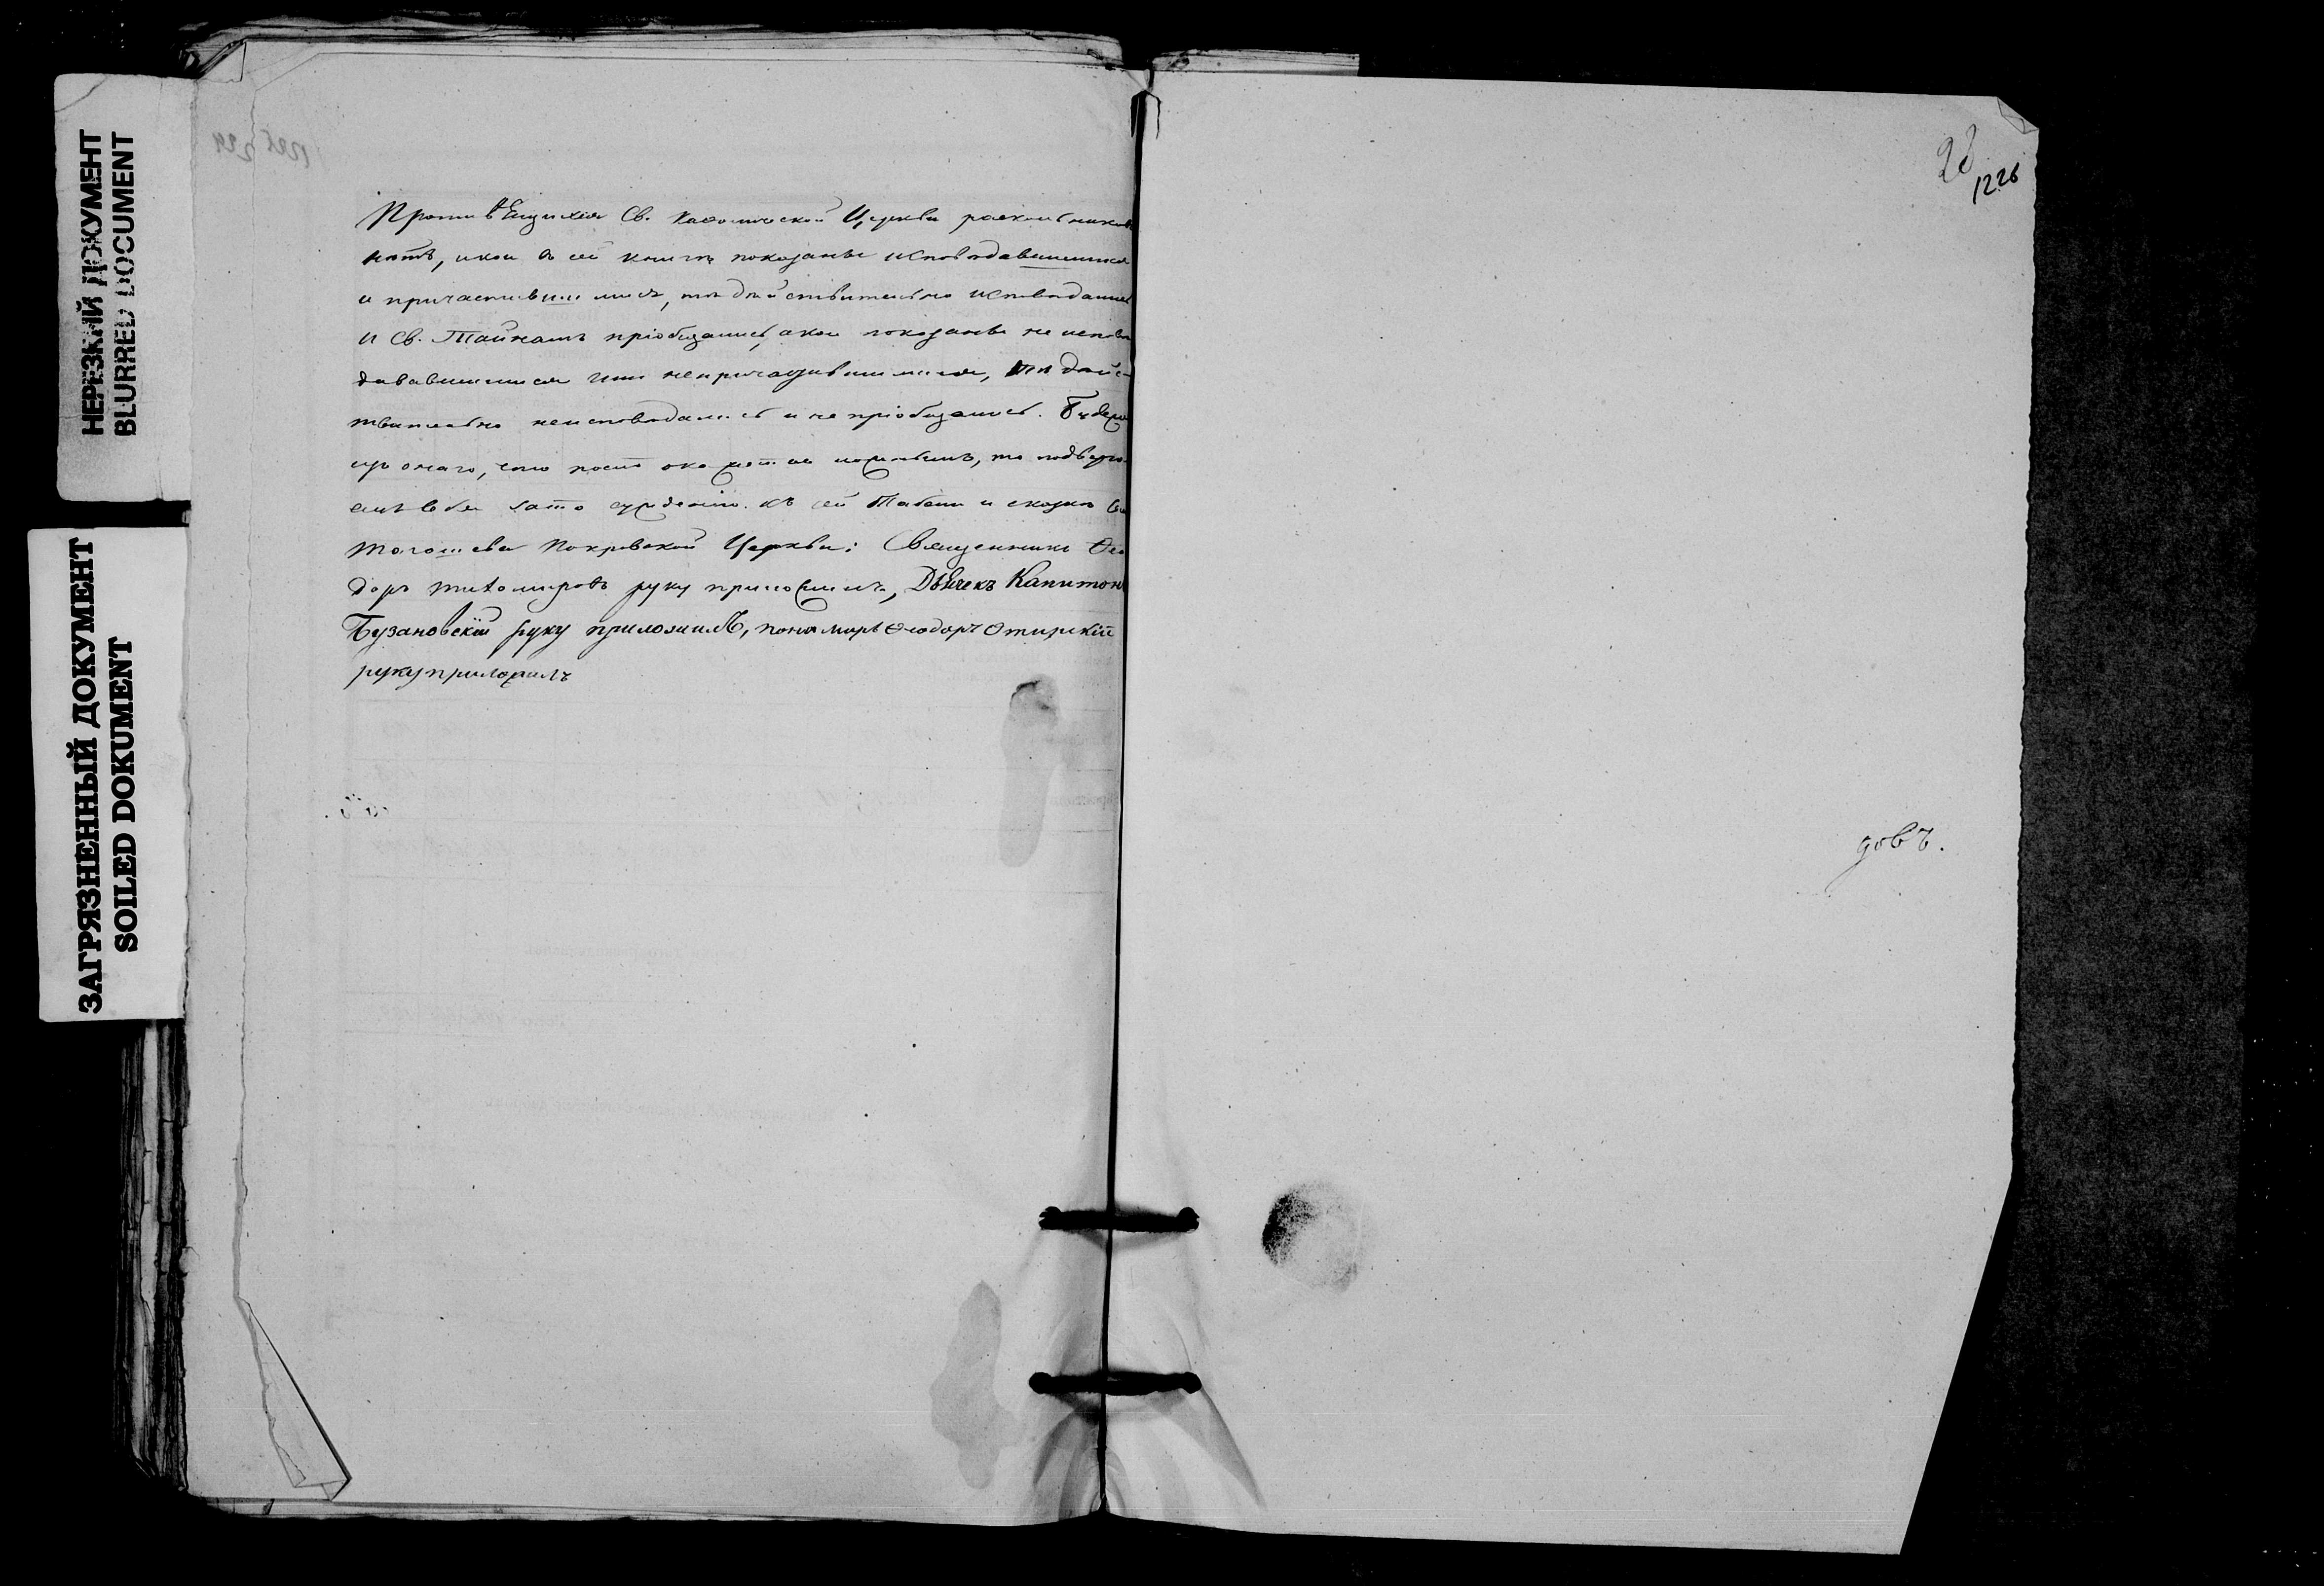 НЕРЕЗКИЙ ДОКУМЕНТ
BLURRED DOCUMENT
ЗАГРЯЗНЕННЫЙ ДОКУМЕНТ
SOILED DOKUMENT
Противящихся Св. Каѳолической Церкви раскольников
нѣтъ, и кои въ сей книгѣ показаны исповѣдавшимися
и причастившимися, тѣ дѣйствительно исповѣдались
и Св. Тайнамъ пріобщались, а кои показаны не исповѣ
дававшимися или непричащившимися, тѣ дѣйс
твительно неисповѣдались и не пріобщались. Буде
что окажется ложнымъ, то подверга
за то сужденію. Къ сей Табели и сказкѣ
Покровской Церкви: Священникъ Ѳео
доръ Тихомировъ руку приложилъ, Дьячекъ Капитонъ
Бузановскій руку приложилъ, пономарь Ѳеодоръ
руку приложилъ
1226
довъ.